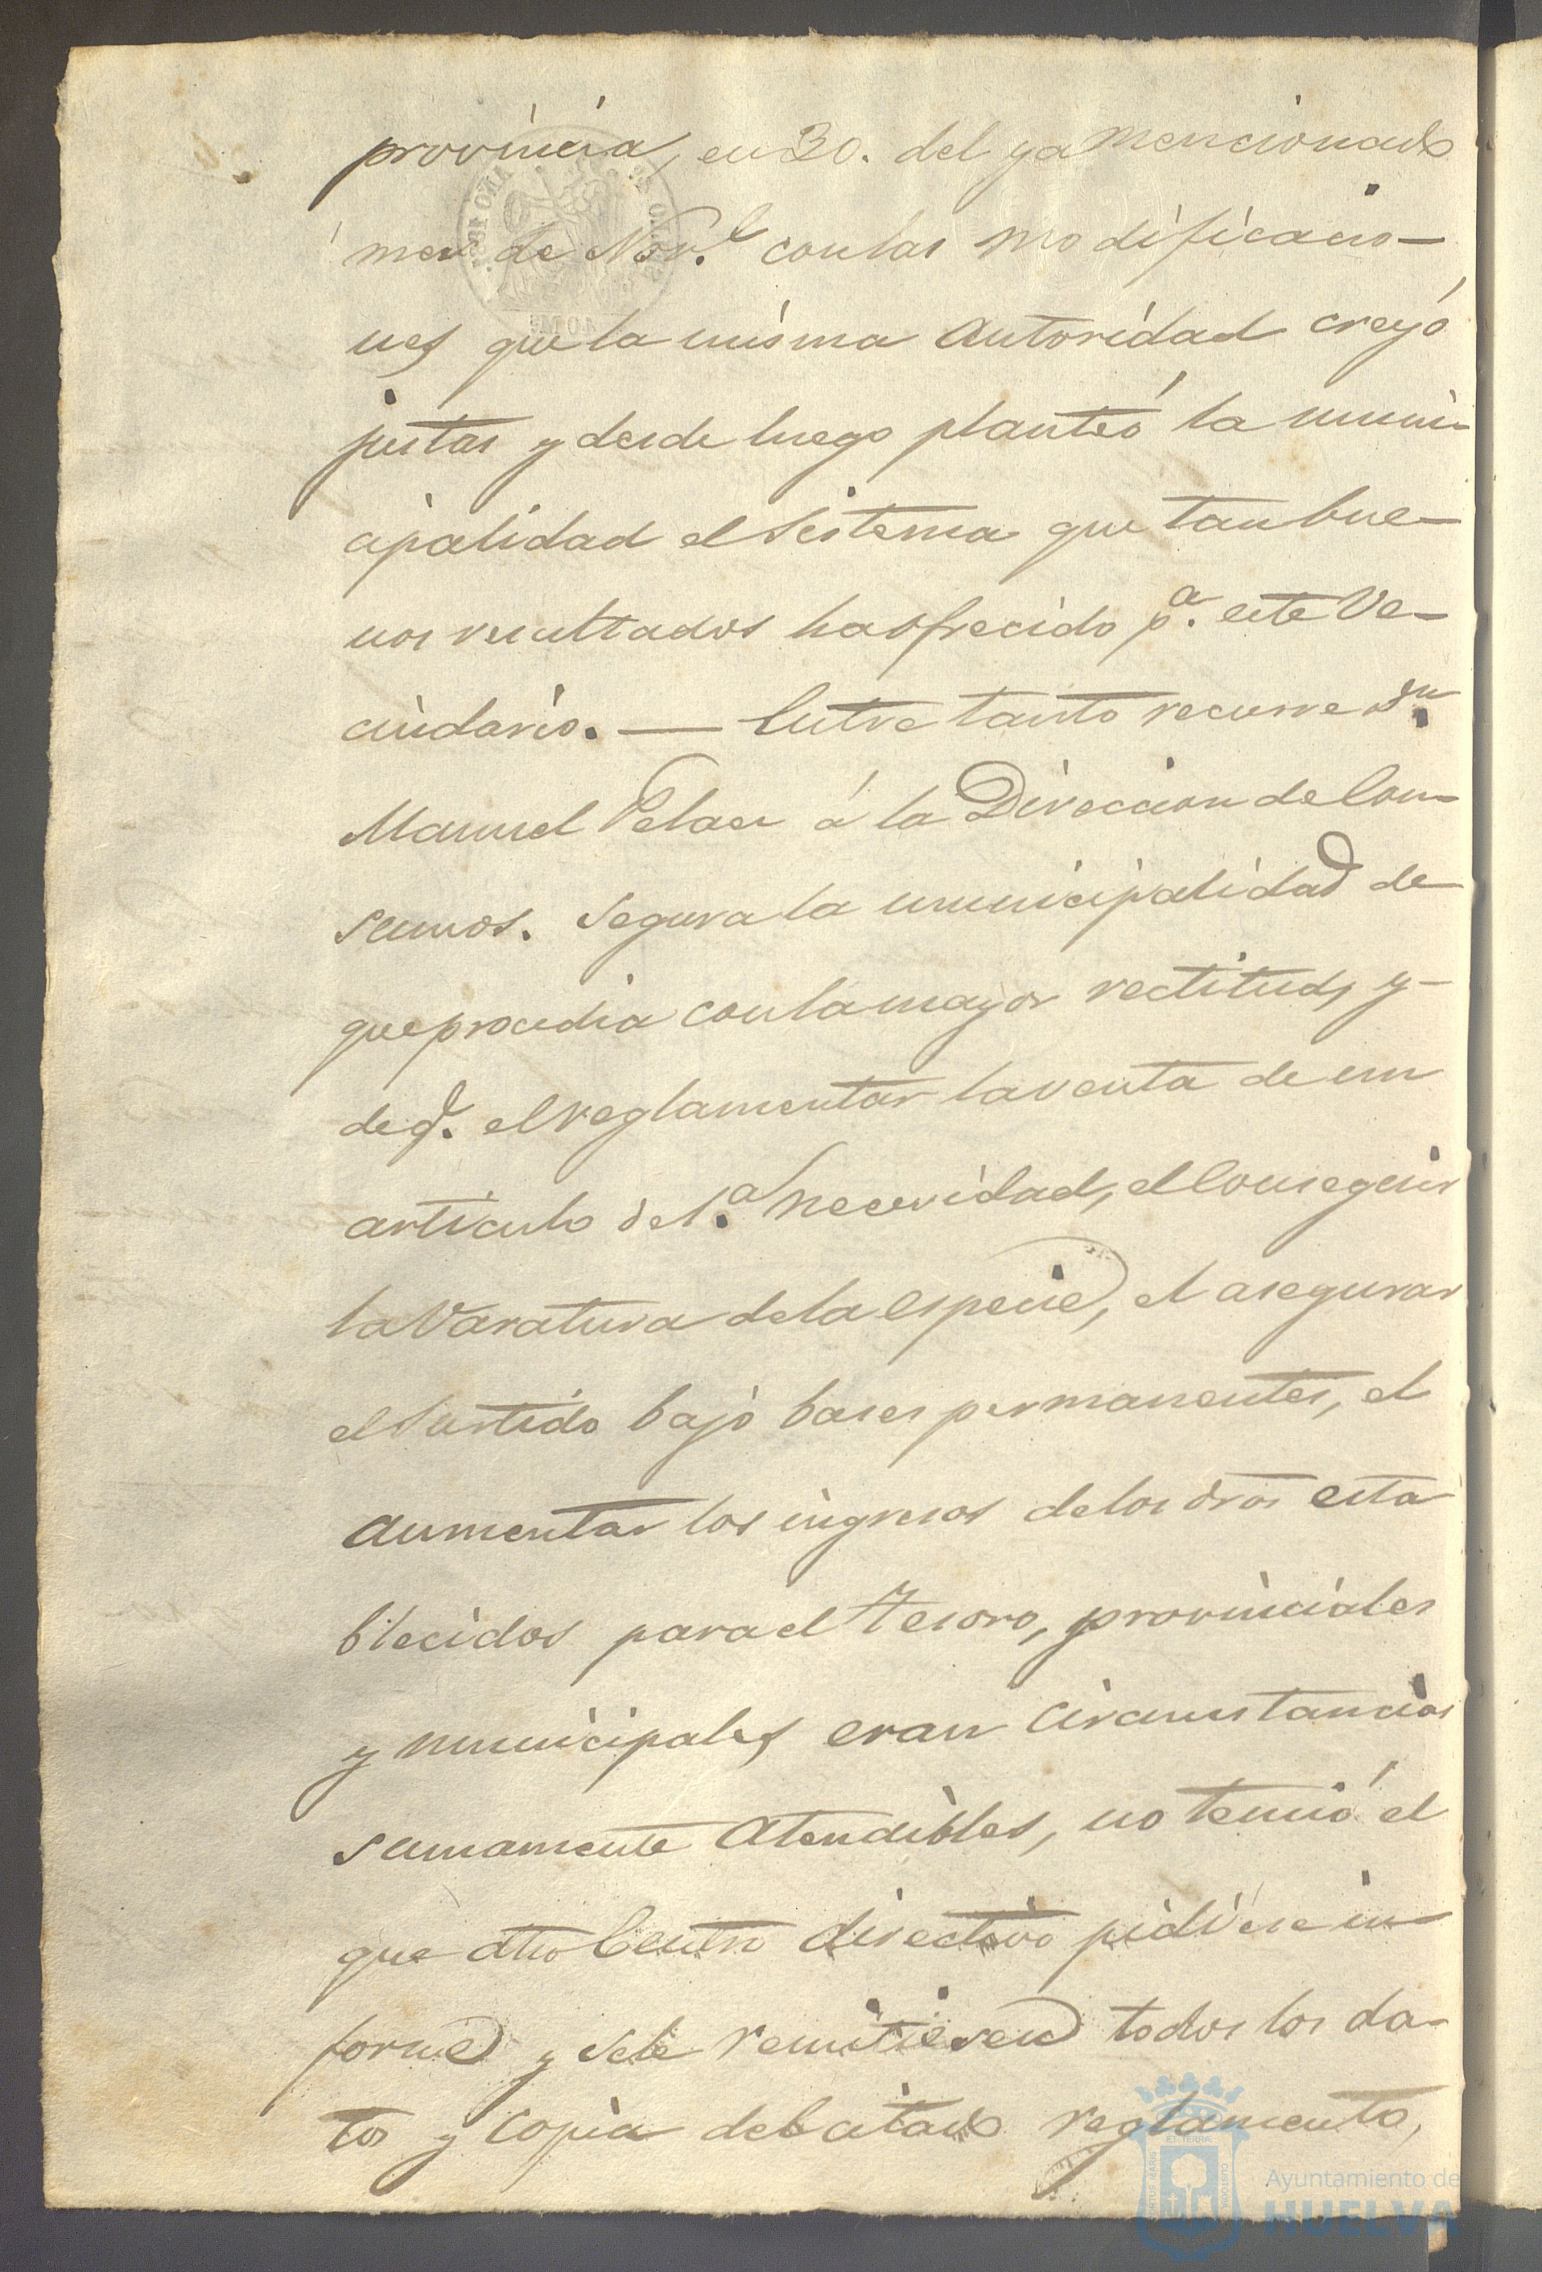 provincia, en 30. del ya mencionado
mes de Nov.e con las modificacio-
nes que la misma Autoridad creyó
justas y desde luego planteó la muni-
cipalidad el Sistema que tan bue-
nos resultados ha ofrecido p.a este Ve-
cindario. — Entre tanto recurre D.n
Manuel Pelaez á la Direccion de Con-
sumos. Segura la municipalidad de
que procedia con la mayor rectitud, y-
de q.e el reglamentar la venta de un
articulo de 1.a necesidad, el Conseguir
la Varatura de la especie, el asegurar
el Surtido bajo bases permanentes, el
aumentar los ingresos de los dros esta
blecidos para el Tesoro, provinciales
y municipales eran Circunstancias
sumamente Atendibles, no temió el
que dho Centro directivo pidiese in-
forme y se le remitiesen todos los da-
tos y copia del citado reglamento,
Ayuntamiento de
HUELVA